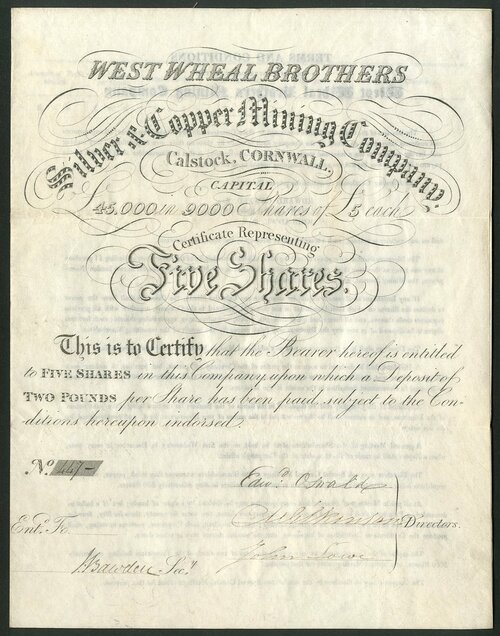 WEST WHEAL BROTHERS
Silver & Copper Mining Company,
Calstock, CORNWALL,
CAPITAL
£45,000 in 9000 Shares of £5 each
Certificate Representing
Five Shares.
This is to Certify that the Bearer hereof is entitled
to FIVE SHARES in this Company, upon which a Deposit of
TWO POUNDS per Share has been paid, subject to the Con-
ditions hereupon indorsed.
No. 447-
Edwd. Oswald
Directors.
Entd. Fo.
John
J Bawden Secy